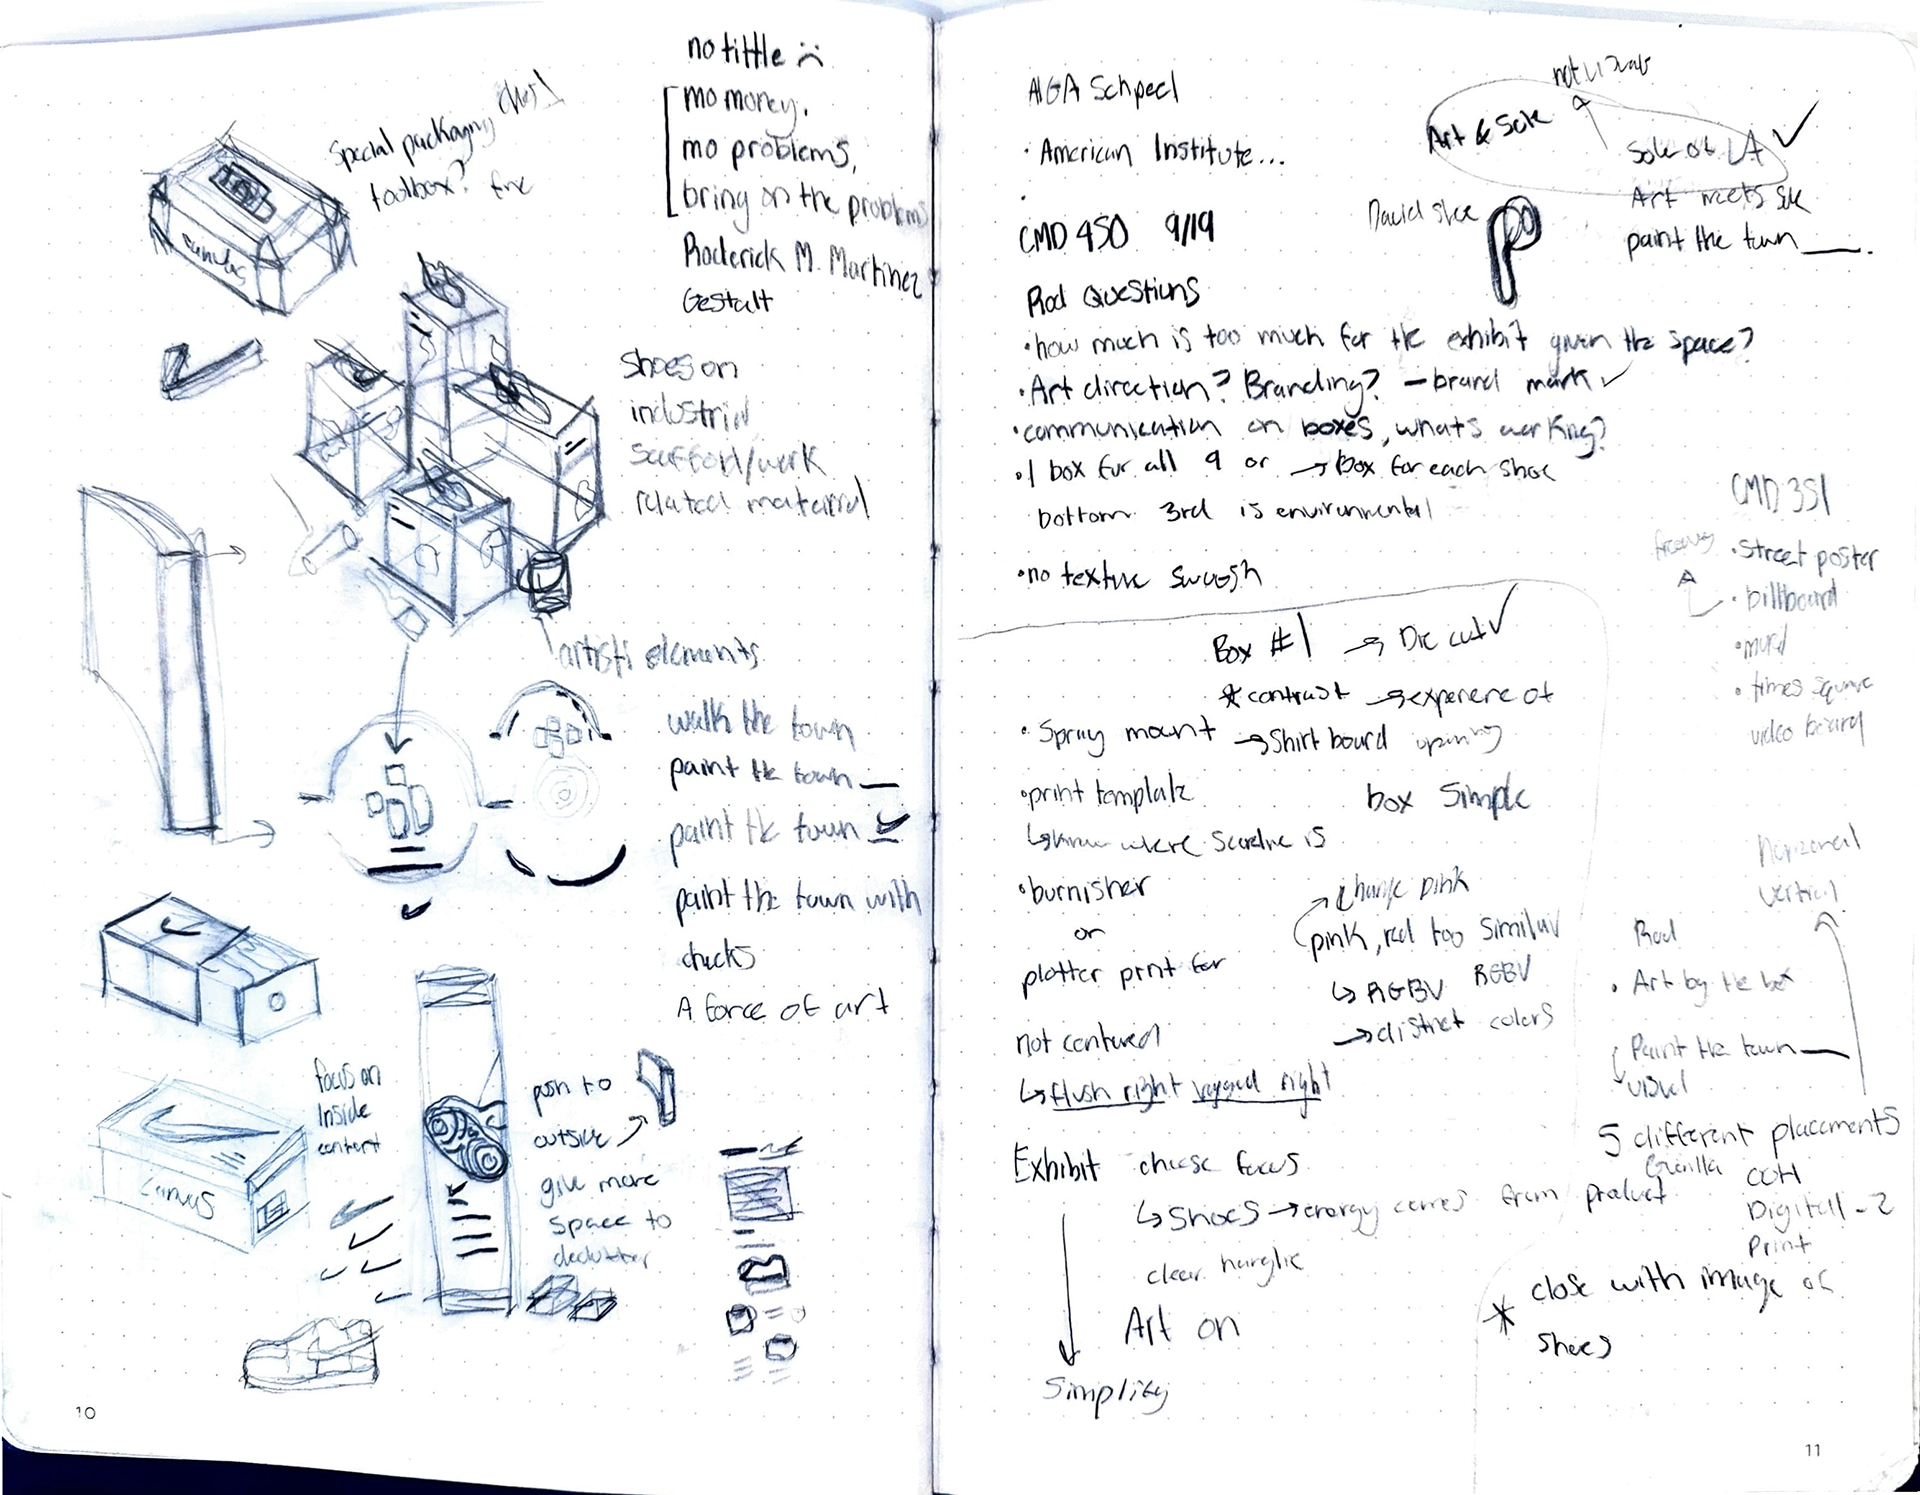 no tittle
mo money,
mo problems,
bring on the problems
Roderick M. Martinez
Gestalt
Special packaging
toolbox?
canvas
shoes on
industrial
related material
elements
walk the town
paint the town __
paint the town
paint the town with
checks
A force of art
focus on
Inside
content
push to
outside
give more
space to
declutter
canvas
10
AIGA Schpeel
· American Institute...
·
CMD 450 9/19
Rod Questions
· how much is too much for the exhibit given the space?
· Art direction? Branding? – brand mark ✓
· communication on boxes, whats working?
· 1 box for all 9 or → box for each shoe
bottom 3rd is environmental
· no texture swoosh
Art & Sole
Sole of LA ✓
Art meets sole
paint the town ___.
David shoe
Box #1 → Die cut ✓
* contrast → experience of
· Spray mount → Shirt board opening
· print template
box simple
↳ know where scoreline is
· burnisher
or
plotter print for
→ change pink
pink, red too similar
↳ RGBV RGBV
→ distinct colors
not centered
↳ flush right ragged right
Exhibit choose focus
↳ shoes → energy comes from product
clear
Art on
Simplify
CMD 351
· street poster
· billboard
· mural
· times square
video board
horizontal
vertical
Rod
· Art by the box
Paint the town __
visual
5 different placements
Guerilla
OOH
Digital - 2
Print
* close with image of
shoes
11